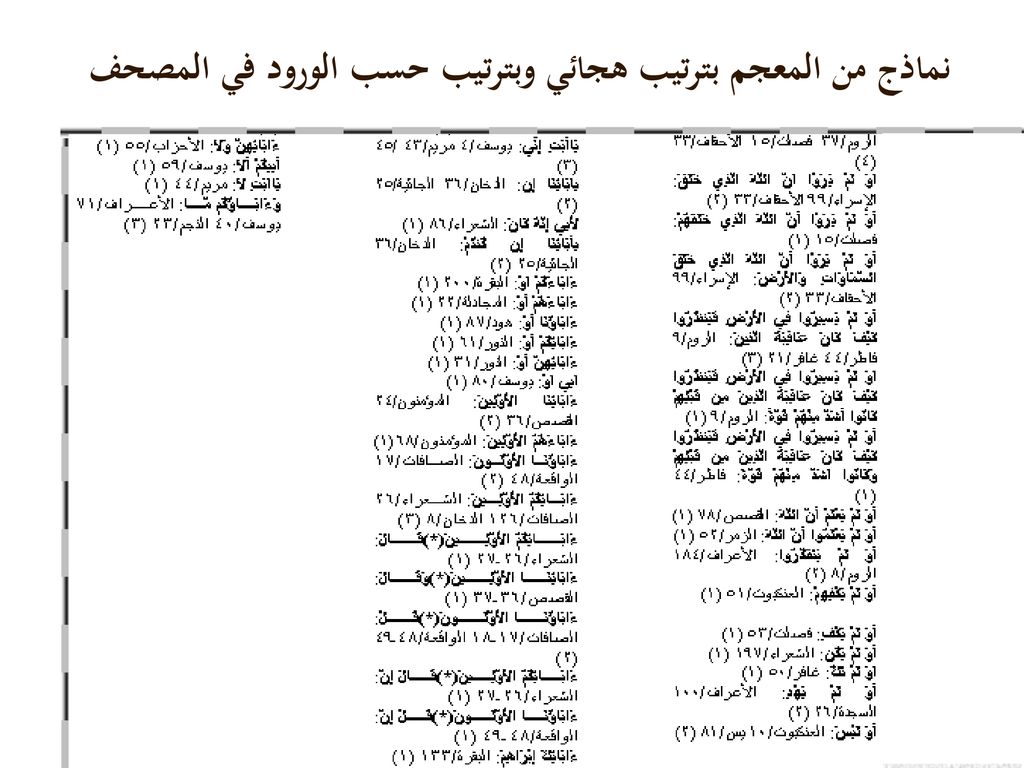 نماذج من المعجم بترتيب هجائي وبترتيب حسب الورود في المصحف
الروم/٣٧ فصلت/١٥ الأحقاف/٣٣
(٤)
أَوَ لَمْ يَرَوْا أَنَّ اللَّهَ الَّذِي خَلَقَ:
الإسراء/٩٩ الأحقاف/٣٣ (٢)
أَوَ لَمْ يَرَوْا أَنَّ اللَّهَ الَّذِي خَلَقَهُمْ:
فصلت/١٥ (١)
أَوَ لَمْ يَرَوْا أَنَّ اللَّهَ الَّذِي خَلَقَ
السَّمَاوَاتِ وَالْأَرْضَ: الإسراء/٩٩
الأحقاف/٣٣ (٢)
أَوَ لَمْ يَسِيرُوا فِي الْأَرْضِ فَيَنظُرُوا
كَيْفَ كَانَ عَاقِبَةُ الَّذِينَ: الروم/٩
فاطر/٤٤ غافر/٢١ (٣)
أَوَ لَمْ يَسِيرُوا فِي الْأَرْضِ فَيَنظُرُوا
كَيْفَ كَانَ عَاقِبَةُ الَّذِينَ مِن قَبْلِهِمْ
كَانُوا أَشَدَّ مِنْهُمْ قُوَّةً: الروم/٩ (١)
أَوَ لَمْ يَسِيرُوا فِي الْأَرْضِ فَيَنظُرُوا
كَيْفَ كَانَ عَاقِبَةُ الَّذِينَ مِن قَبْلِهِمْ
وَكَانُوا أَشَدَّ مِنْهُمْ قُوَّةً: فاطر/٤٤
(١)
أَوَ لَمْ يَعْلَمْ أَنَّ اللَّهَ: القصص/٧٨ (١)
أَوَ لَمْ يَعْلَمُوا أَنَّ اللَّهَ: الزمر/٥٢ (١)
أَوَ لَمْ يَتَفَكَّرُوا: الأعراف/١٨٤
الروم/٨ (٢)
أَوَ لَمْ يَكْفِهِمْ: العنكبوت/٥١ (١)
أَوَ لَمْ يَكْفِ: فصلت/٥٣ (١)
أَوَ لَمْ يَكُن: الشعراء/١٩٧ (١)
أَوَ لَمْ تَكُ: غافر/٥٠ (١)
أَوَ لَمْ يَهْدِ: الأعراف/١٠٠
السجدة/٢٦ (٢)
أَوَ لَيْسَ: العنكبوت/١٠ يس/٨١ (٢)
يَاأَبَتِ إِنِّي: يوسف/٤ مريم/٤٣ /٤٥
(٣)
بِآبَائِنَا إِن: الدخان/٣٦ الجاثية/٢٥
(٢)
لِأَبِي إِنَّهُ كَانَ: الشعراء/٨٦ (١)
بِآبَائِنَا إِن كُنتُمْ: الدخان/٣٦
الجاثية/٢٥ (٢)
ءَابَاءَكُمْ أَوْ: البقرة/٢٠٠ (١)
ءَابَاءَهُمْ أَوْ: المجادلة/٢٢ (١)
ءَابَاؤُنَا أَوْ: هود/٨٧ (١)
ءَابَائِكُمْ أَوْ: النور/٦١ (١)
ءَابَائِهِنَّ أَوْ: النور/٣١ (١)
أَبِي أَوْ: يوسف/٨٠ (١)
ءَابَائِنَا الْأَوَّلِينَ: المؤمنون/٢٤
القصص/٣٦ (٢)
ءَابَاءَهُمُ الْأَوَّلِينَ: المؤمنون/٦٨ (١)
ءَابَاؤُنَا الْأَوَّلُونَ: الصافات/١٧
الواقعة/٤٨ (٢)
ءَابَائِكُمُ الْأَوَّلِينَ: الشعراء/٢٦
الصافات/١٢٦ الدخان/٨ (٣)
ءَابَائِكُمُ الْأَوَّلِينَ(*)قَالَ:
الشعراء/٢٦-٢٧ (١)
ءَابَائِنَا الْأَوَّلِينَ(*)وَقَالَ:
القصص/٣٦-٣٧ (١)
ءَابَاؤُنَا الْأَوَّلُونَ(*)قُلْ:
الصافات/١٧-١٨ الواقعة/٤٨-٤٩
(٢)
ءَابَائِكُمُ الْأَوَّلِينَ(*)قَالَ إِنَّ:
الشعراء/٢٦-٢٧ (١)
ءَابَاؤُنَا الْأَوَّلُونَ(*)قُلْ إِنَّ:
الواقعة/٤٨-٤٩ (١)
ءَابَائِكَ إِبْرَاهِيمَ: البقرة/١٣٣ (١)
ءَابَائِهِنَّ وَلَا: الأحزاب/٥٥ (١)
أَبِيكُمْ أَلَا: يوسف/٥٩ (١)
يَاأَبَتِ لَا: مريم/٤٤ (١)
وَءَابَاؤُكُم مَّا: الأعراف/٧١
يوسف/٤٠ النجم/٢٣ (٣)